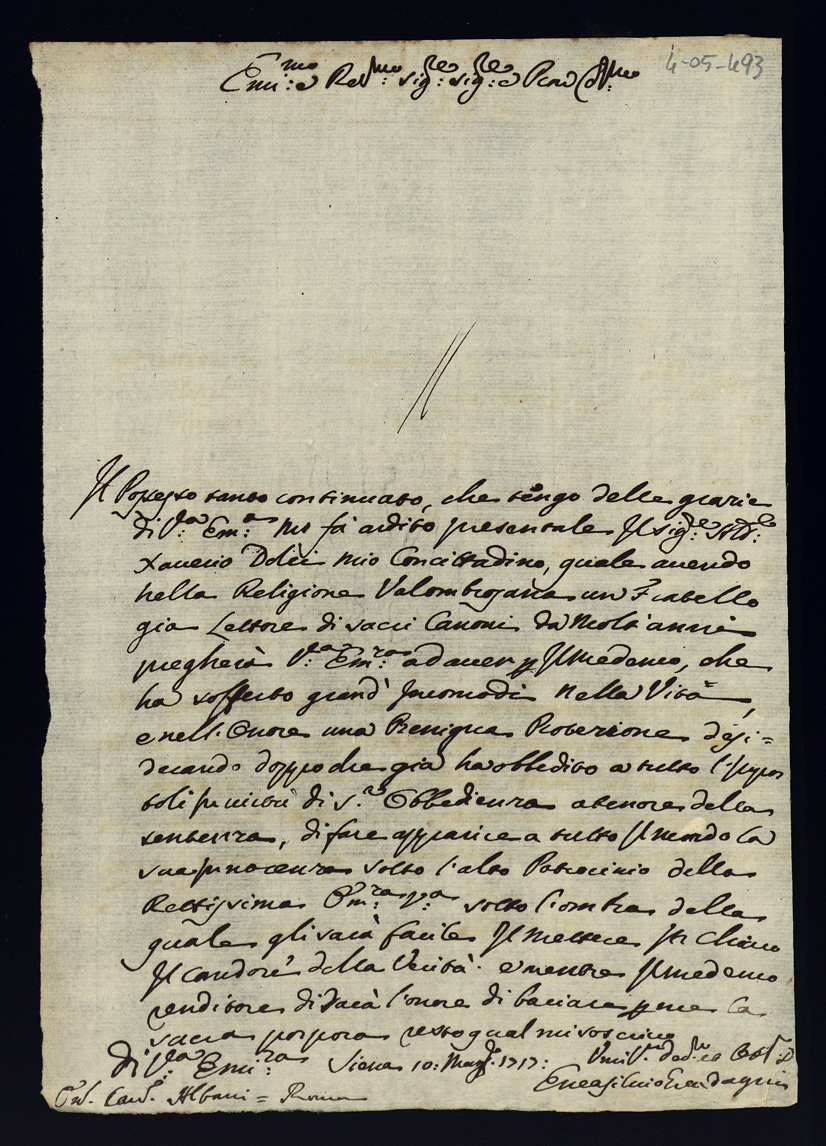 4-05-493
Em:mo e Rev:mo Sig:re Sig:re e Pron Col:mo
Il Possesso tanto continuato, che tengo delle grazie
di V:a Em:a mi fà ardito presentale Il Sig:re
Xaverio Dolci mio Concittadino, quale avendo
nella Religione Valombrosana un Fratello
gia Lettore di sacri Canoni da Molt'anni
pregherà V:a Em:za ad aver p Il medemo, che
ha sofferto grand' Incomodi nella Vita
e nell'Onore una Benigna Protezione desi=
derando doppo che già ha obbedito a tutto
di S.ta Obbedienza a tenore della
sentenza, di fare apparire a tutto Il mondo la
sua Innocenza sotto l'alto Patrocinio della
Rettissima Em:za V:a sotto l'ombra della
quale gli sarà facile Il mettere In chiaro
Il candore della Verità. e mentre Il medemo
renditore di darà l'onore di baciare p me la
sacra porpora resto qual mi soscrivo
di V:a Emi:za Siena 10: Mag: 1717: Umil:mo
Enea Silvio
Card. Albani = Roma